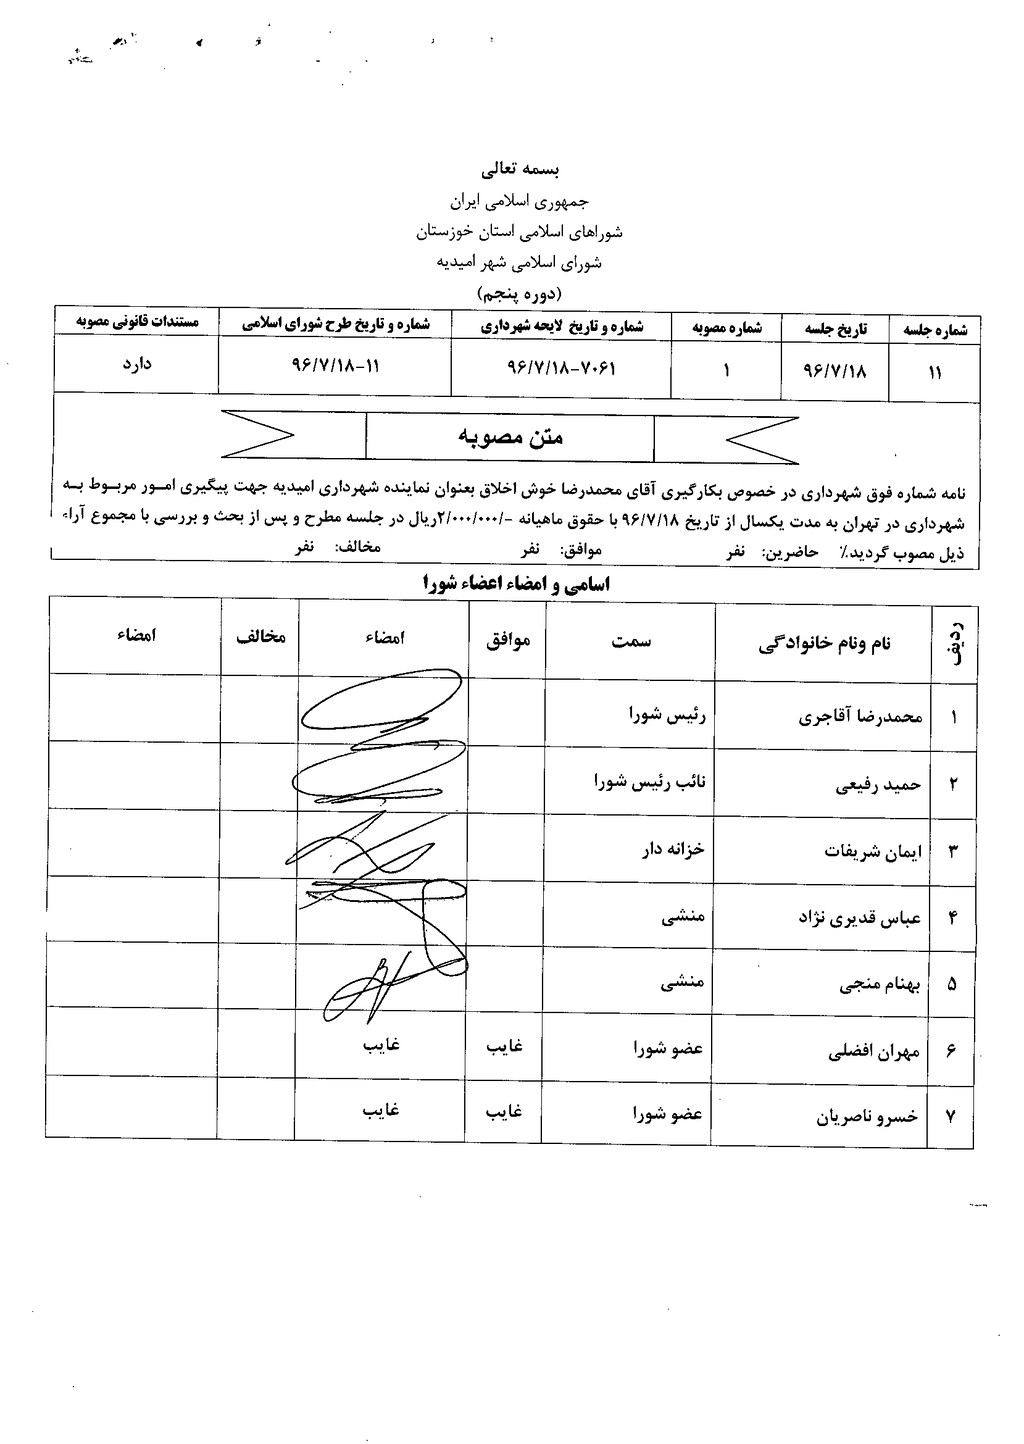 بسمه تعالی
جمهوری اسلامی ایران
شوراهای اسلامی استان خوزستان
شورای اسلامی شهر امیدیه
(دوره پنجم)
شماره جلسه تاریخ جلسه شماره مصوبه شماره و تاریخ لایحه شهرداری شماره و تاریخ طرح شورای اسلامی مستندات قانونی مصوبه
۱۱ ۹۶/۷/۱۸ ۱ ۹۶/۷/۱۸-۷۰۶۱ ۹۶/۷/۱۸-۱۱ دارد
متن مصوبه
نامه شماره فوق شهرداری در خصوص بکارگیری آقای محمدرضا خوش اخلاق بعنوان نماینده شهرداری امیدیه جهت پیگیری امور مربوط به
شهرداری در تهران به مدت یکسال از تاریخ ۹۶/۷/۱۸ با حقوق ماهیانه -/۲/۰۰۰/۰۰۰ریال در جلسه مطرح و پس از بحث و بررسی با مجموع آراء
ذیل مصوب گردید.٪ حاضرین: نفر موافق: نفر مخالف: نفر
اسامی و امضاء اعضاء شورا
ردیف نام ونام خانوادگی سمت موافق امضاء مخالف امضاء
۱ محمدرضا آقاجری رئیس شورا
۲ حمید رفیعی نائب رئیس شورا
۳ ایمان شریفات خزانه دار
۴ عباس قدیری نژاد منشی
۵ بهنام منجی منشی
۶ مهران افضلی عضو شورا غایب غایب
۷ خسرو ناصریان عضو شورا غایب غایب